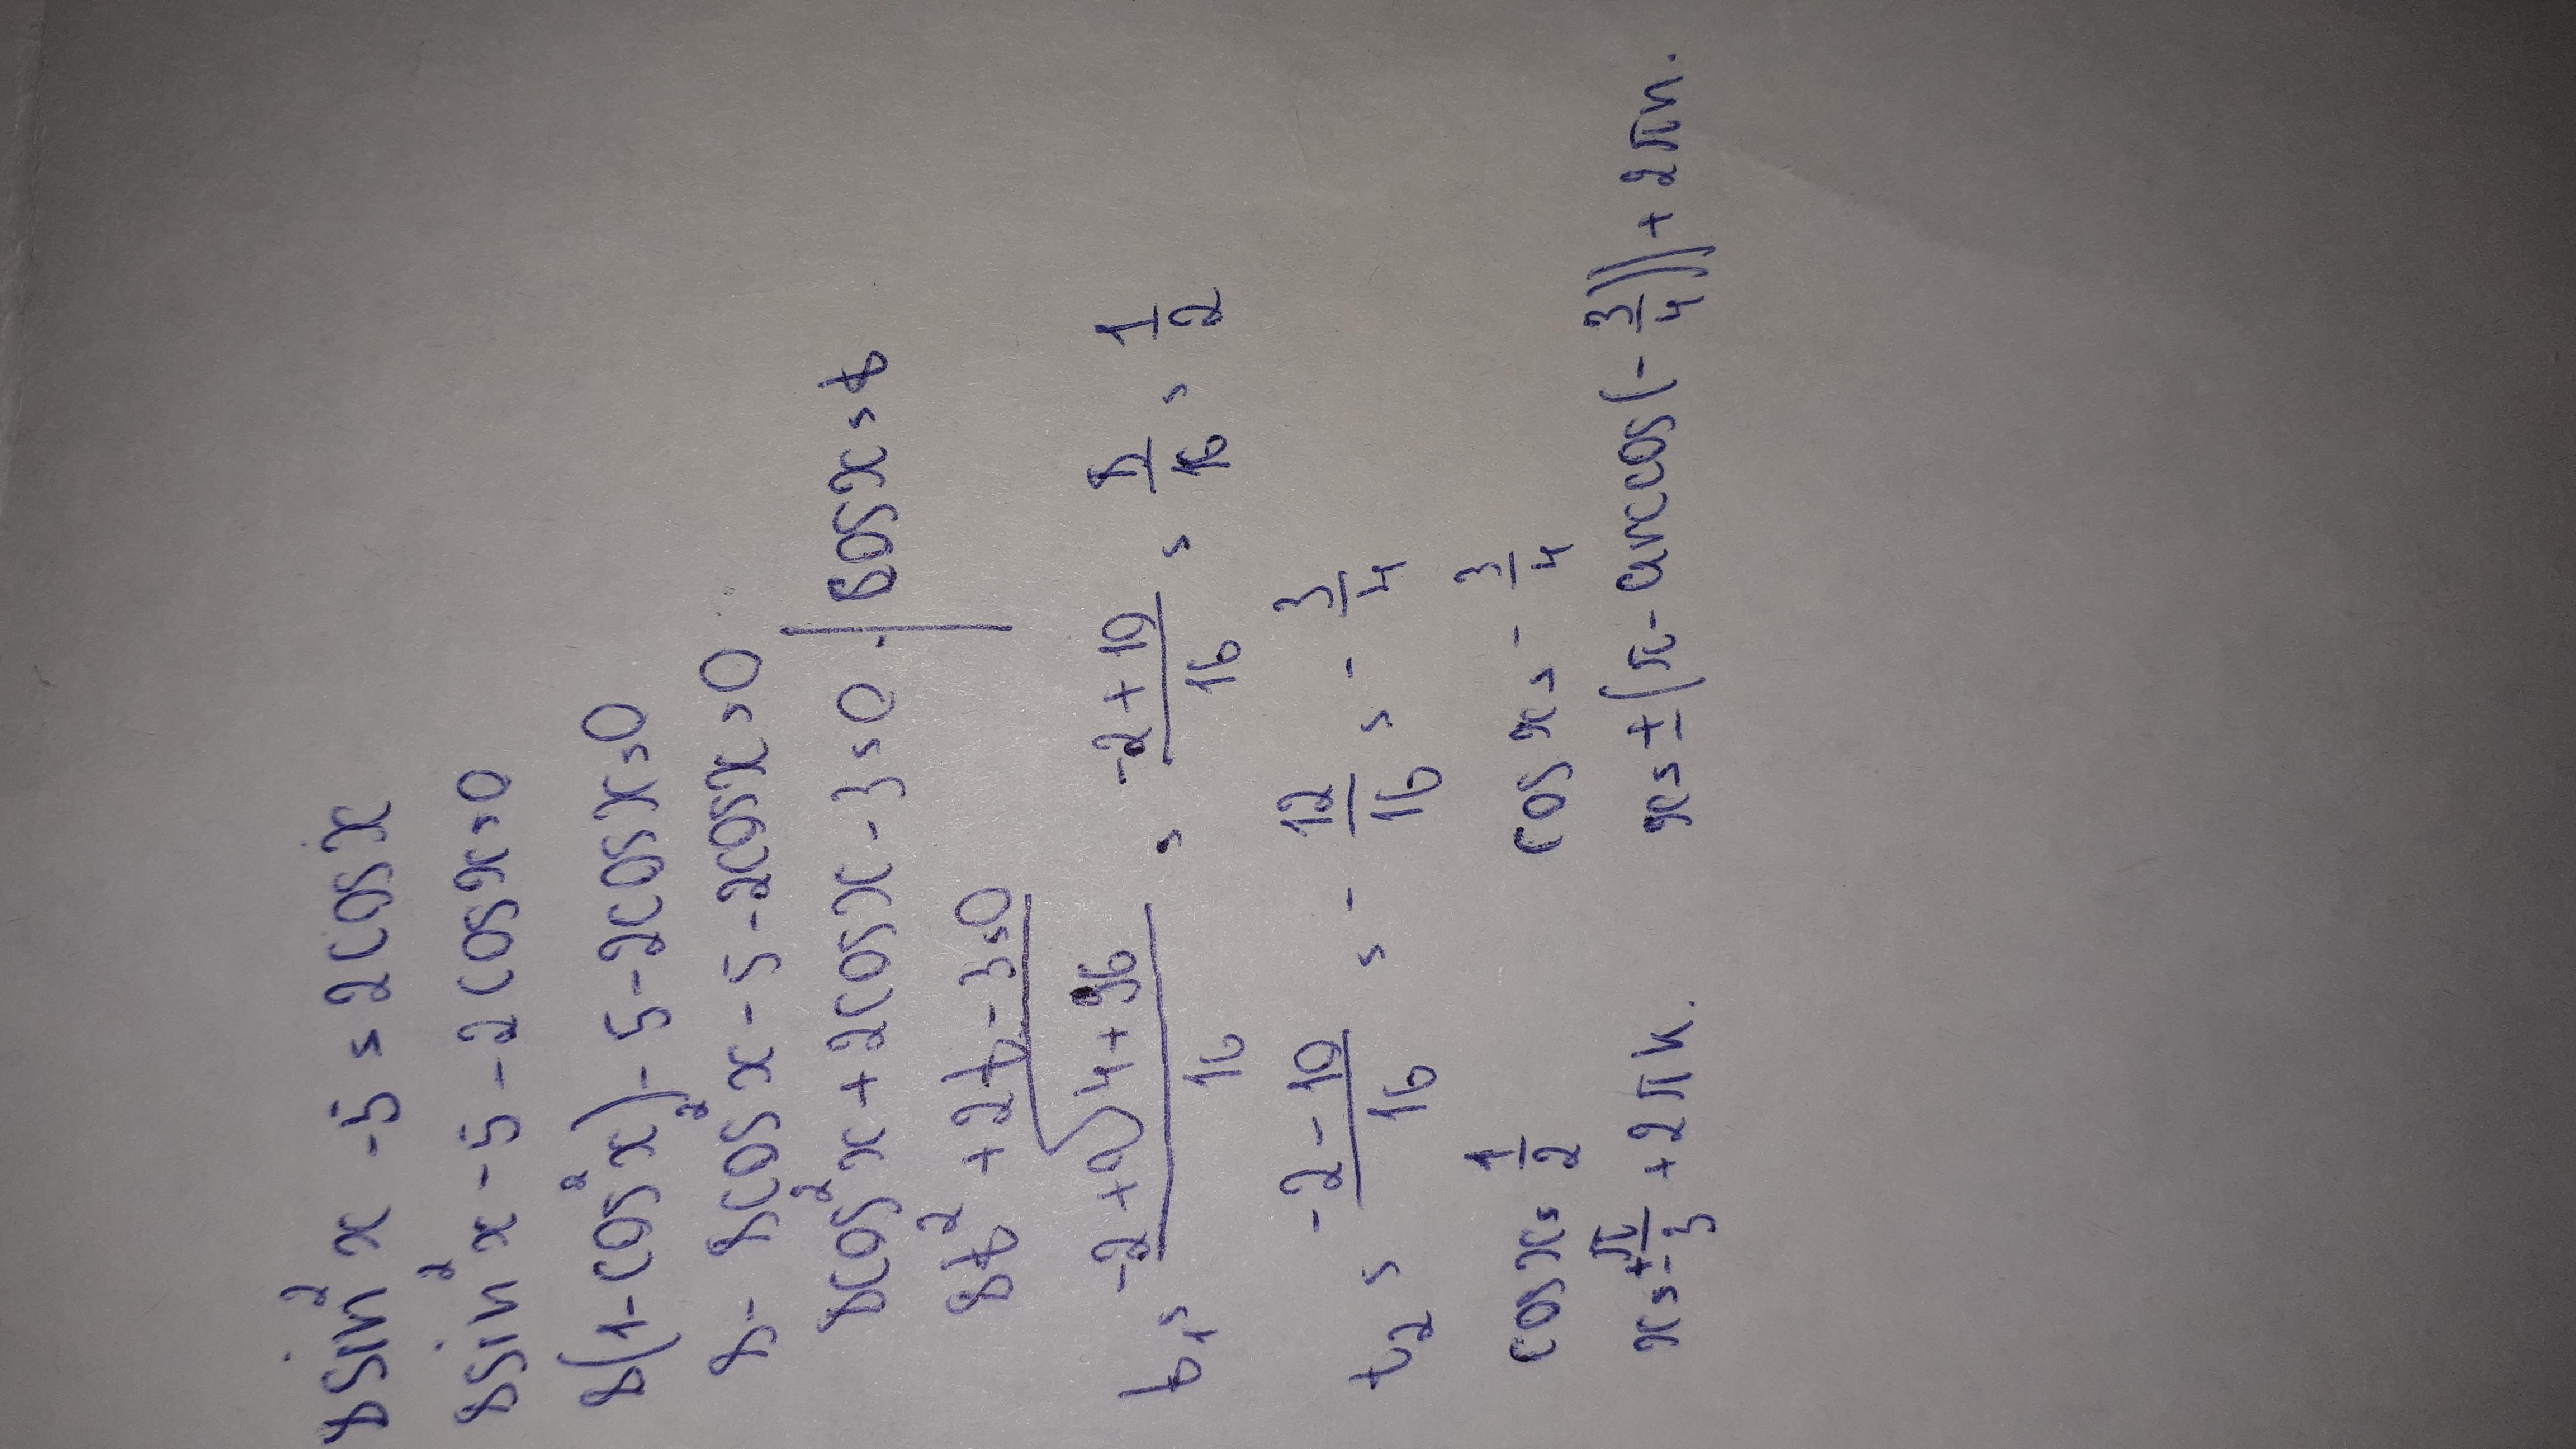 8sin² x - 5 = 2cos x
8sin² x - 5 - 2cos x = 0
8(1-cos² x) - 5 - 2cos x = 0
8 - 8cos² x - 5 - 2cos x = 0
8cos² x + 2cos x - 3 = 0. | cos x = t
8t² + 2t - 3 = 0
t₁ = (-2 + √(4+96))/16 = (-2+10)/16 = 8/16 = 1/2
t₂ = (-2-10)/16 = -12/16 = -3/4
cos x = 1/2 cos x = -3/4
x = ±π/3 + 2πk. x = ±(π - arccos(-3/4)) + 2πn.